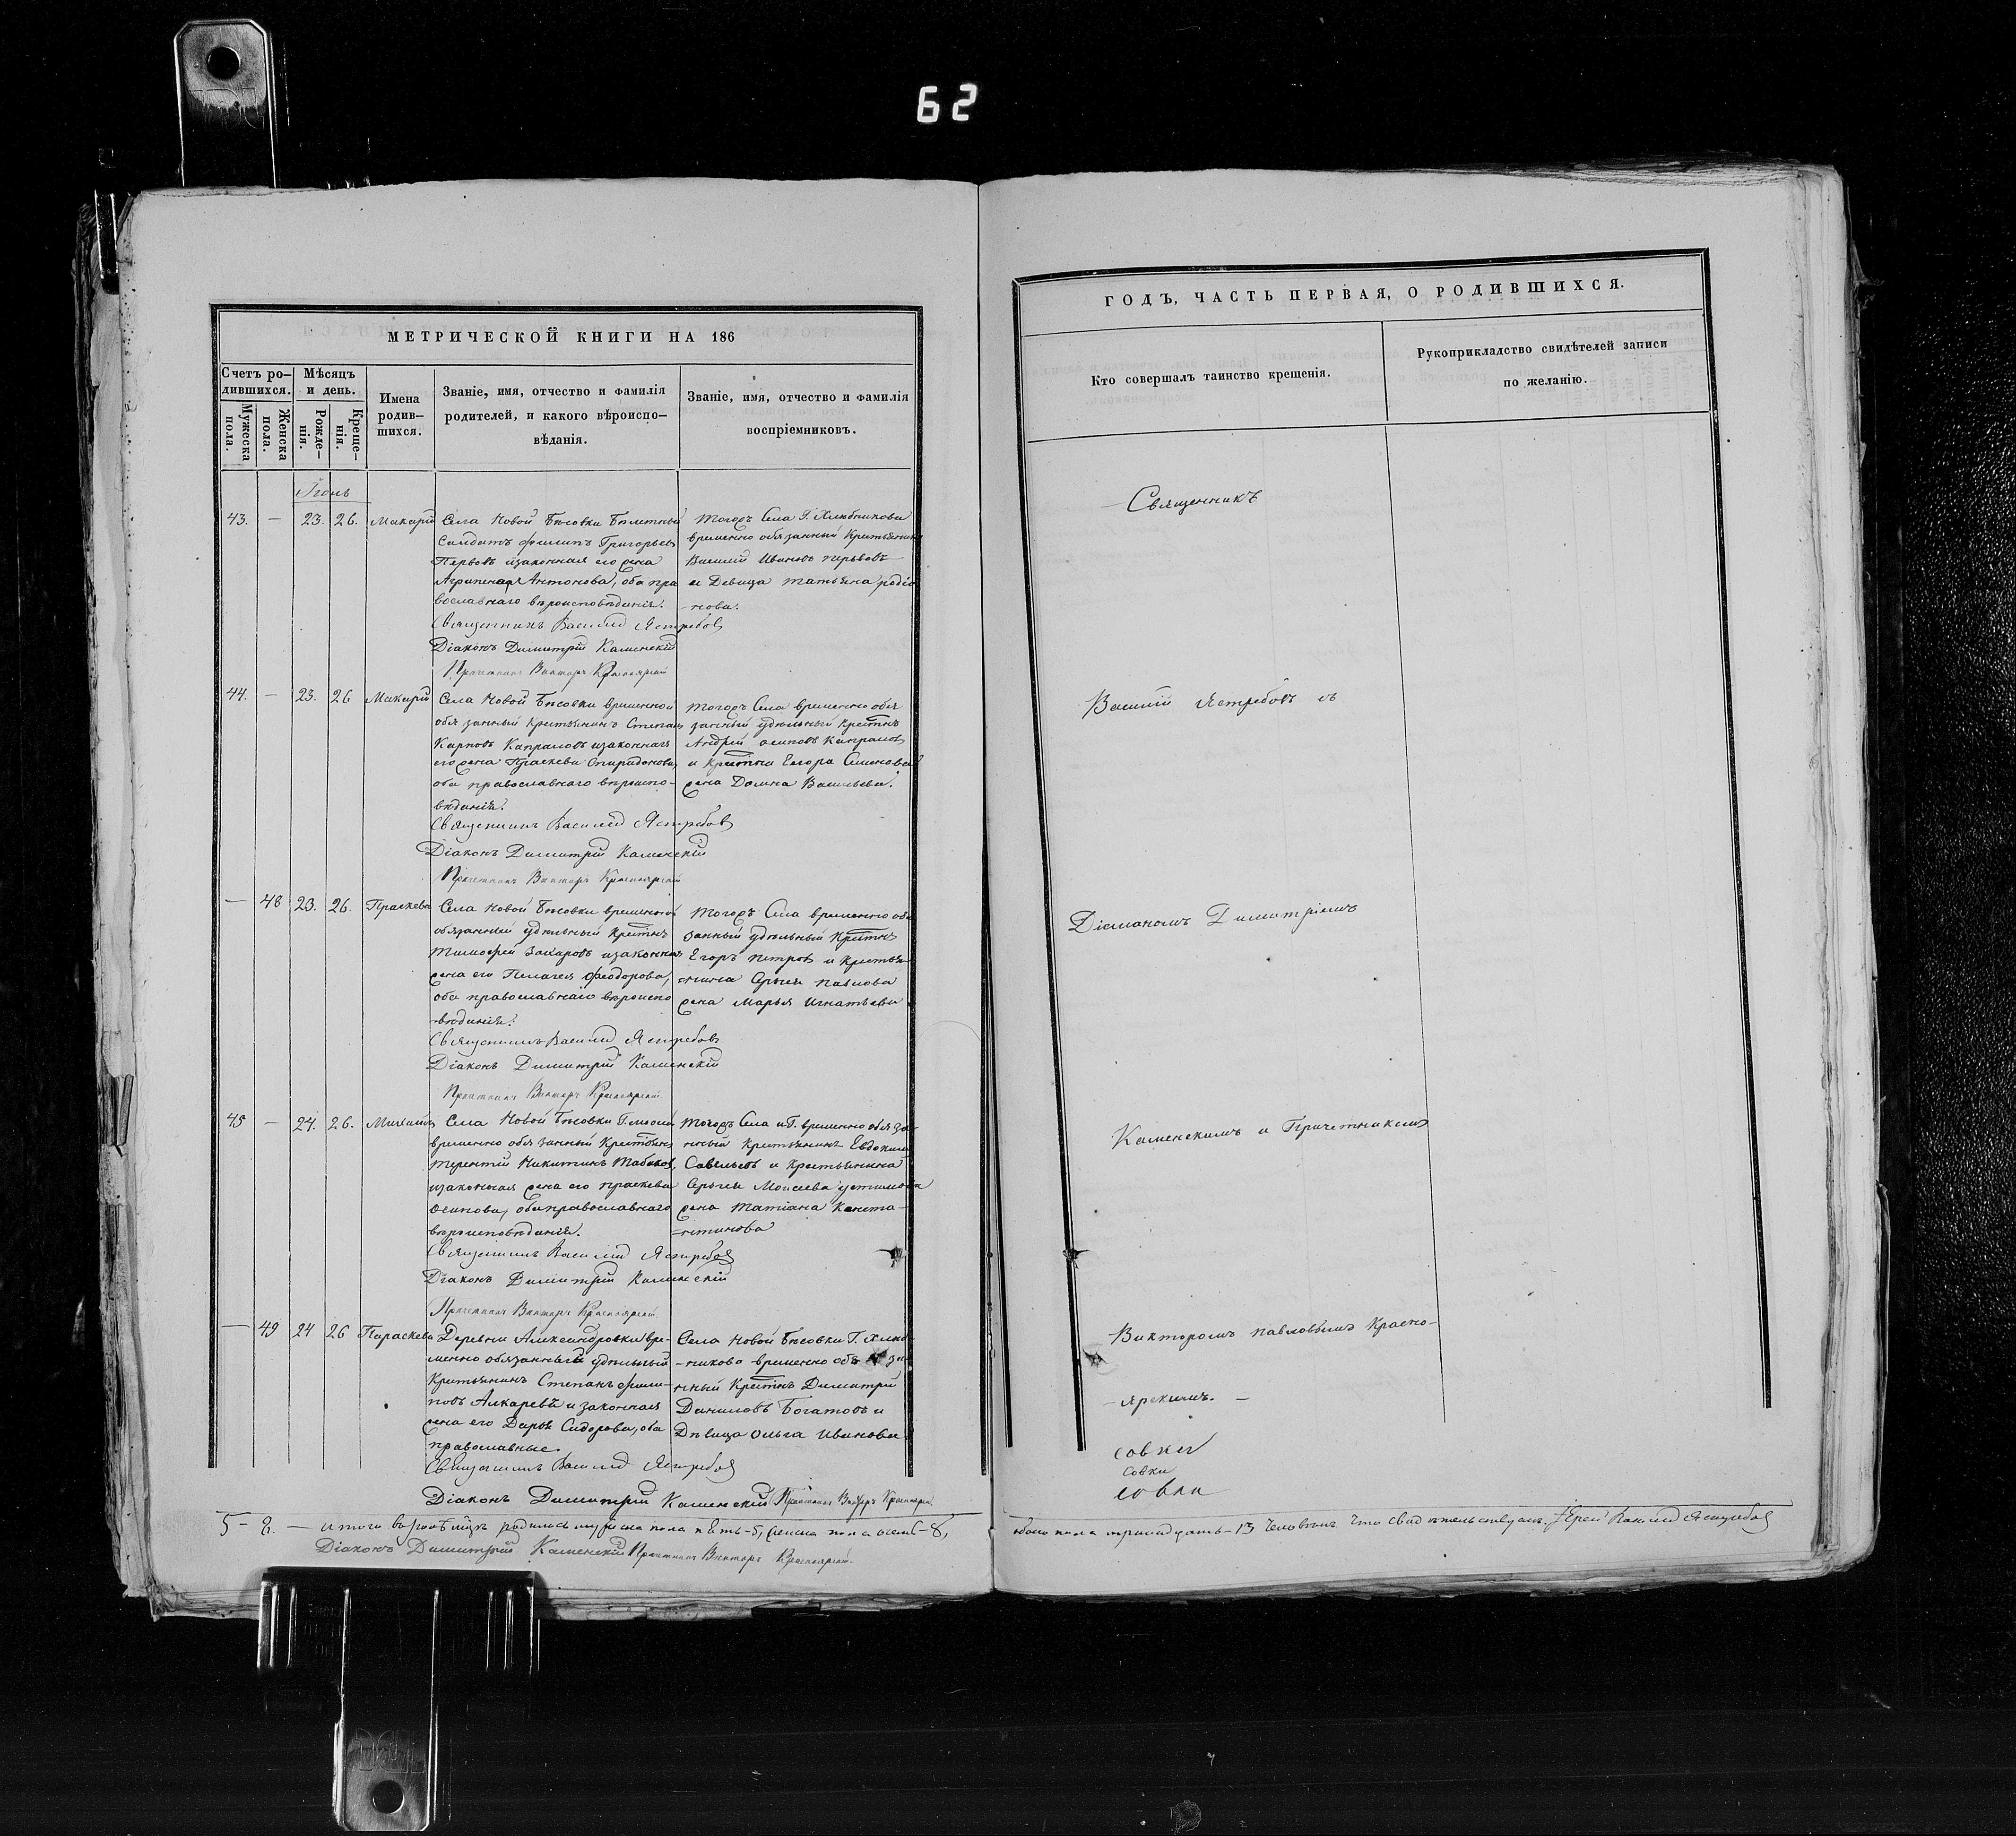 62
МЕТРИЧЕСКОЙ КНИГИ НА 186
Счетъ ро-
дившихся.
Мужеска
пола.
Женска
пола.
Мѣсяцъ
и день.
Рожде-
нія.
Креще-
нія.
Имена
родив-
шихся.
Званіе, имя, отчество и фамилія
родителей, и какого вѣроиспо-
вѣданія.
Званіе, имя, отчество и фамилія
воспріемниковъ.
43. — 23. 26. Макарій
Села Новой Бѣсовки Билетный
Солдатъ Филипъ Григорьевъ
Первовъ изаконная его жена
Агрипена Антонова, оба пра
вославнаго вѣроисповѣданія.
Священникъ Василій Ястребовъ
Діаконъ Димитрій Каменскій
Причетникъ Викторъ Красноярскій
тогожъ Села Г. Хлебникова
временно обязанный Крестьянинъ
Василій Ивановъ первовъ
и Девица татьяна родіо
-нова.
44. — 23. 26 Макарій
Села Новой Бѣсовки временной
обязанный крестьянинъ Степанъ
Карповъ Капраловъ изаконная
его жена Праскева Спиридонова,
оба православнаго вѣроиспо-
вѣданія.
Священникъ Василій Ястребовъ
Діаконъ Димитрій Каменскій
Причетникъ Викторъ Красноярскій
тогожъ Села временно обя
занный удѣльный крестнъ
Андрей осиповъ Капраловъ
и Крестна Егора Семенова
жена Домна Васильева.
— 48 23. 26. Праскева
Села Новой Бѣсовки временной
обязанный удѣльный крестнъ
Тимофей Захаровъ изаконная
жена его Пелагея Феодорова,
оба православнаго вѣроиспо
-вѣданія.
Священникъ Василій Ястребовъ
Діаконъ Димитрій Каменскій
Причетникъ Викторъ Красноярскій
тогожъ Села временно обя
занный удѣльный Крестнъ
Егоръ петровъ и Крестья
-нина Сергея павлова
жена Марья Игнатьева
45 — 24. 26. Михаилъ
Села Новой Бѣсовки
временно обязанный Крестьянъ
терентій Никитинъ Табаковъ,
изаконная жена его праскева
осипова, оба православнаго
вѣроисповѣданія.
Священникъ Василій Ястребовъ
Діаконъ Димитрій Каменскій
Причетникъ Викторъ Красноярскій
тогожъ Села и Г. временно обяза-
нный крестьянинъ Евдокимъ
Савельевъ и крестьянина
Сергея Моисеева устимова
жена татіана Конста-
=нтинова
— 49 24 26 Параскева
Деревни Александровки вре-
менно обязанный удѣльный
Крестьянинъ Степанъ фили-
повъ Алкаревъ и законная
жена его Дарья Сидорова, оба
православные.
Священникъ Василій Ястребовъ
Діаконъ Димитрій Каменскій Причетникъ Викторъ Красноярскій
Села Новой Бѣсовки Г. Хлеб-
-никова временно обяза-
нный Крестнъ Димитрій
Даниловъ Богатовъ и
Дѣвица Ольга Иванова
5 - 8. — итого въ Іюлѣ мцѣ родилось мужеска пола пять-5, женска пола осемь-8,
Діаконъ Димитрій Каменскій Причетникъ Викторъ Красноярскій.
ГОДЪ, ЧАСТЬ ПЕРВАЯ, О РОДИВШИХСЯ.
Кто совершалъ таинство крещенія.
Рукоприкладство свидѣтелей записи
по желанію.
Священникъ
Василій Ястребовъ съ
Діакономъ Димитріемъ
Каменскимъ и Причетникомъ
Викторомъ павловымъ Красно-
-ярскимъ. —
совки
совки
совки
обоего пола тринадцать-13 человѣкъ. Что свидѣтельствуемъ. Іерей Василій Ястребовъ